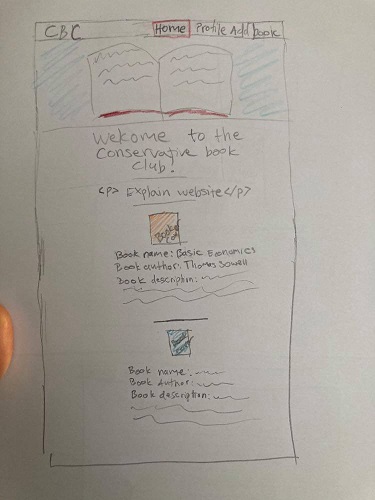 CBC Home Profile Add book
Welcome to the
Conservative book
club!
<p> Explain website </p>
Book name: Basic Economics
Book author: Thomas Sowell
Book description:
Book name:
Book Author:
Book description: